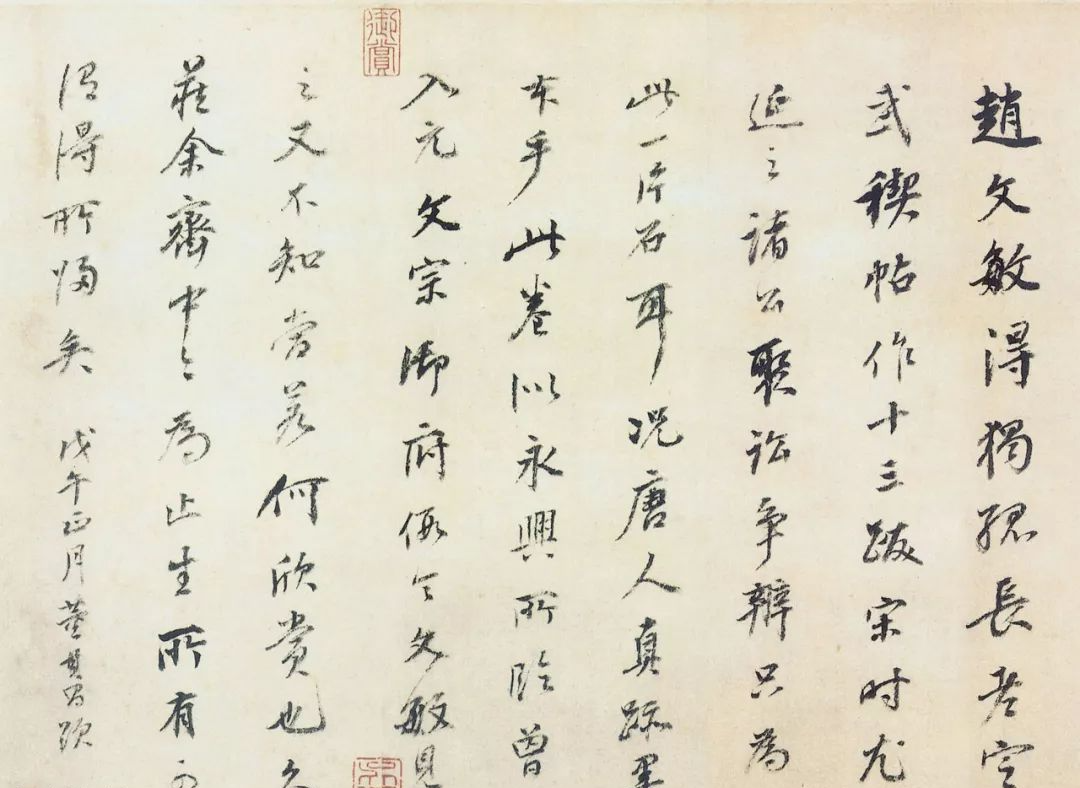 趙文敏得獨孤長老定
武禊帖作十三跋宋時尤
延之諸公聚訟爭辯只為
此一片石耳況唐人真跡墨
本乎此卷似永興所臨曾
入元文宗御府假令文敏見
之又不知當若何欣賞也久
藏余齋中今為止生所有可
謂得所歸矣 戊午正月董其昌題
御賞